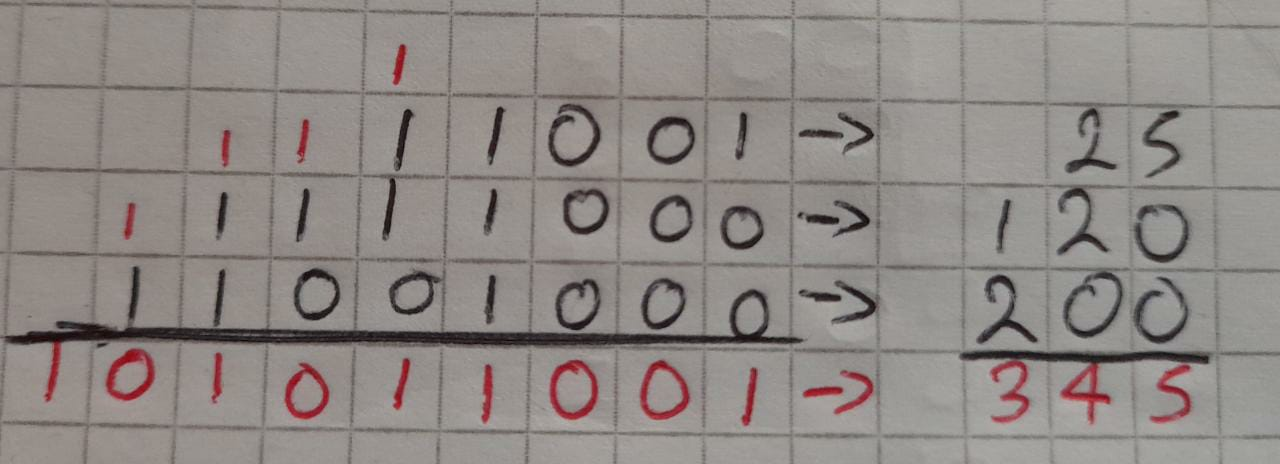 1
1 1 1 1 0 0 1 -> 25
1 1 1 1 1 0 0 0 -> 120
1 1 0 0 1 0 0 0 -> 200
1 0 1 0 1 1 0 0 1 -> 345